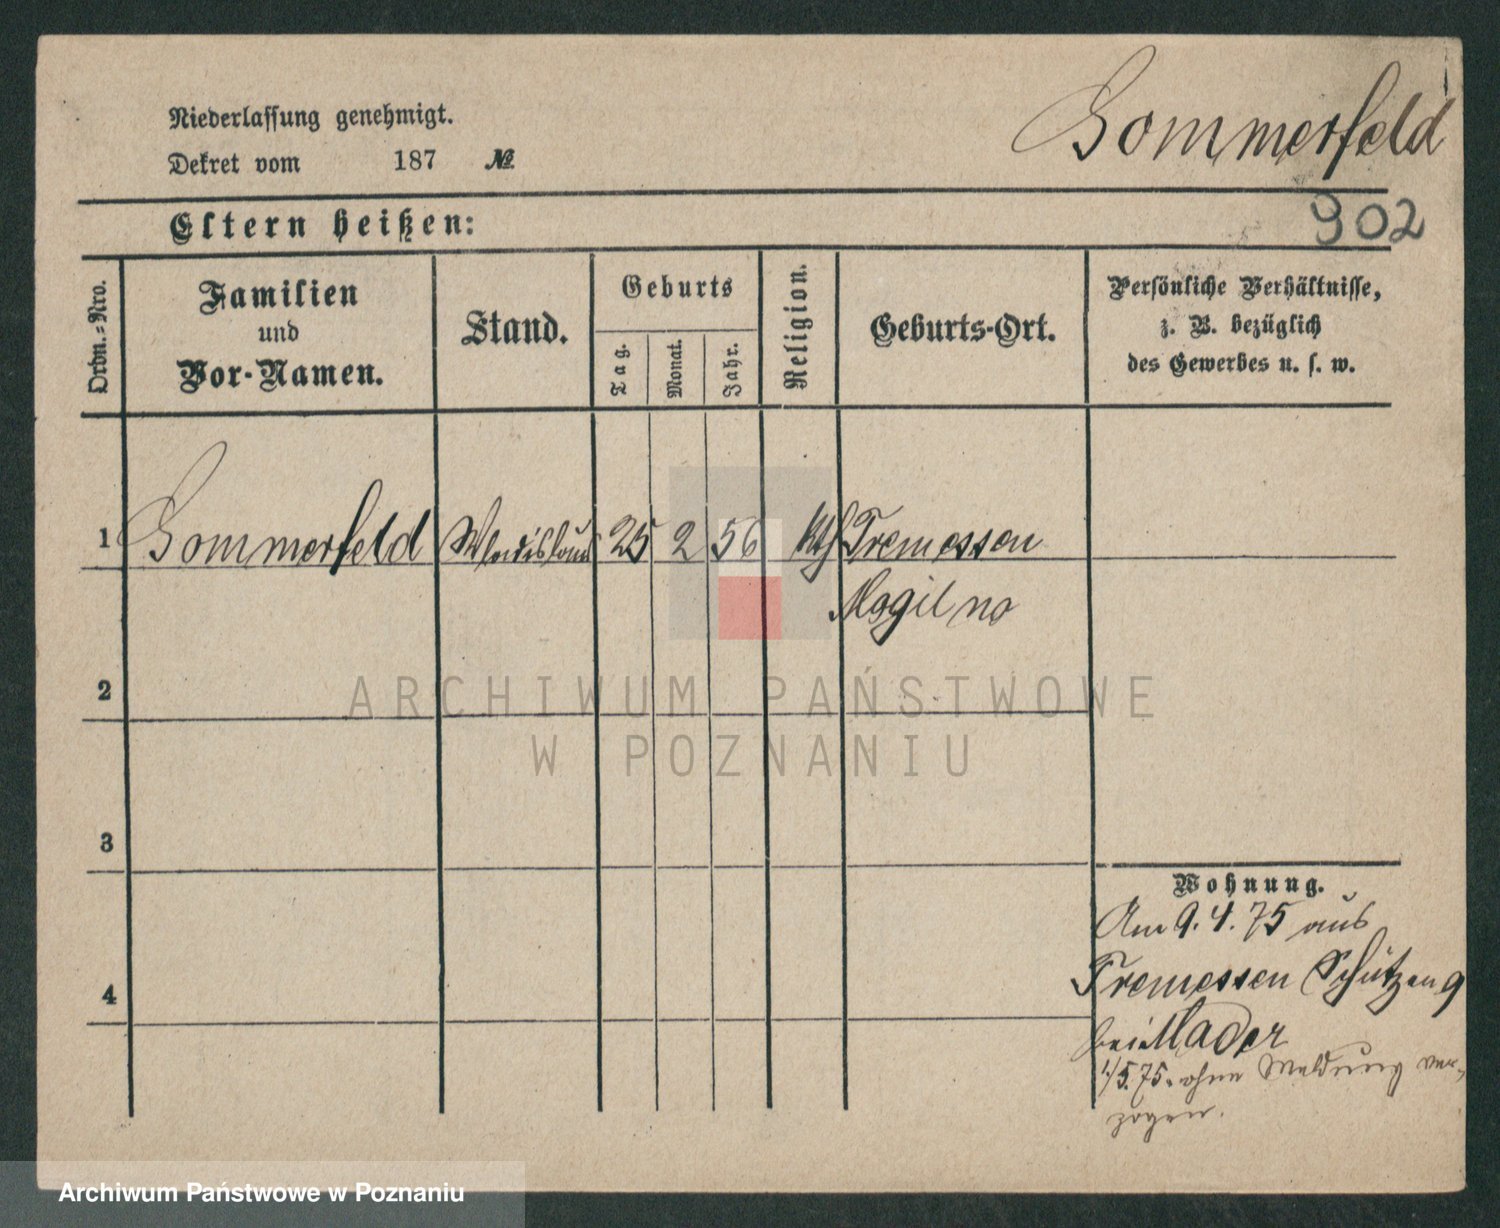 Niederlassung genehmigt.
Sommerfeld
Dekret vom 187 №
Eltern heißen:
902
Ordn.-Nro.
Familien
und
Vor-Namen.
Stand.
Geburts
Tag.
Monat.
Jahr.
Religion.
Geburts-Ort.
Persönliche Verhältnisse,
z. B. bezüglich
des Gewerbes u. s. w.
1 Sommerfeld Wladislaus 25 2 56 kth Tremessen
Mogilno
2
3
4
Wohnung.
Am 9.4.75 aus
Tremessen Schützen 9
bei Mader
1/5.75. ohne Meldung ver-
zogen.
ARCHIWUM PAŃSTWOWE
W POZNANIU
Archiwum Państwowe w Poznaniu